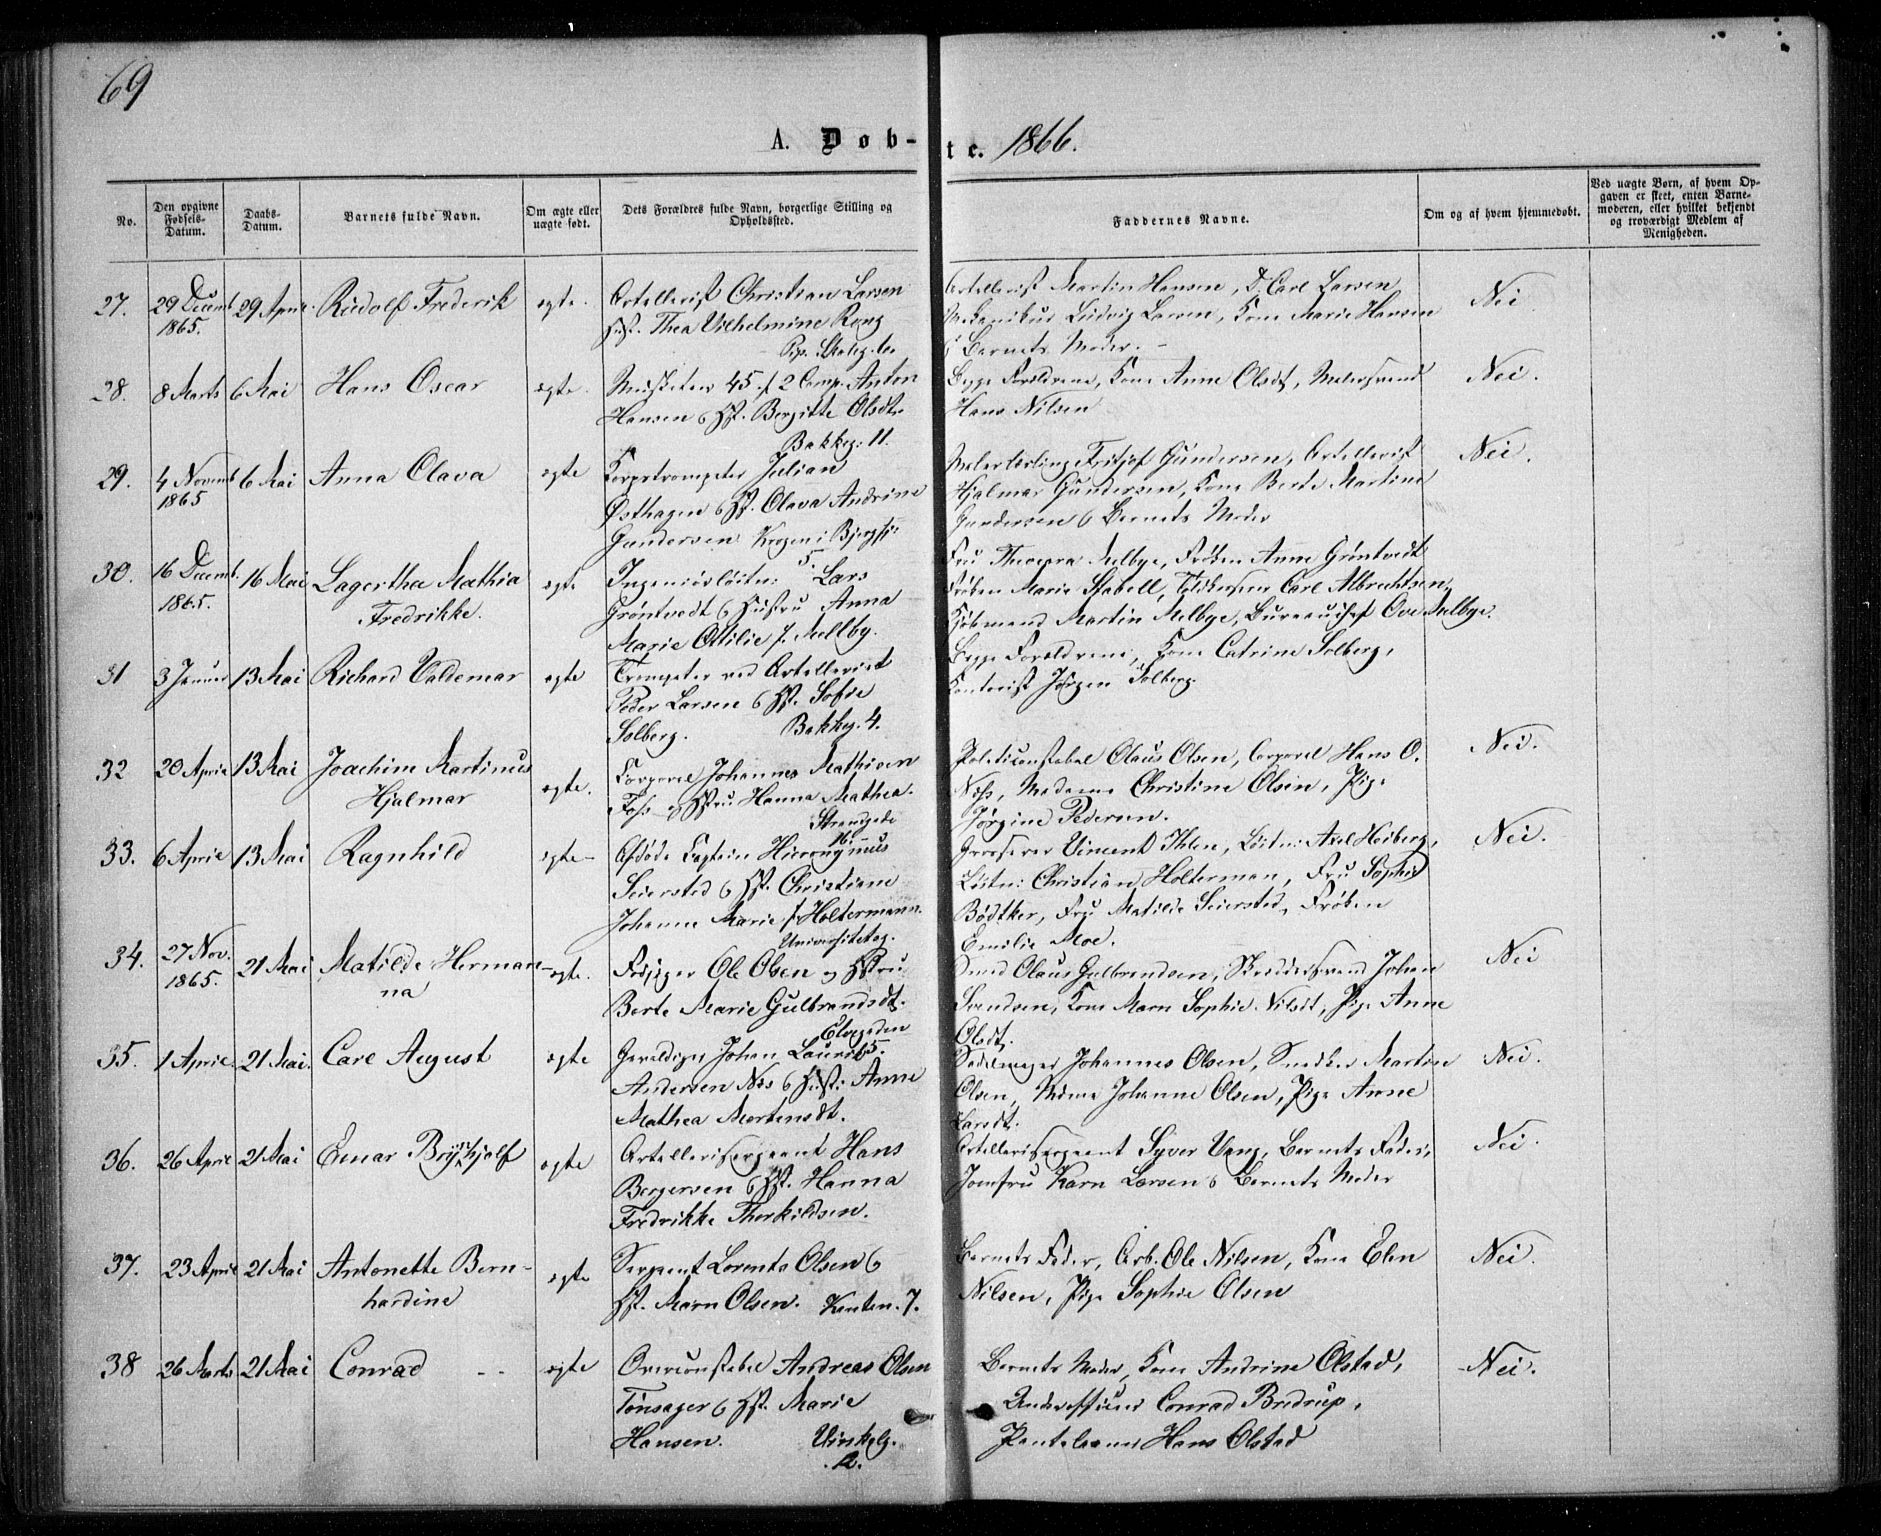 69
A. Døb-te. 1866.
No.
Den opgivne Fødsels-Datum.
Daabs-Datum.
Barnets fulde Navn.
Om ægte eller uægte født.
Dets Forældres fulde Navn, borgerlige Stilling og Opholdssted.
Faddernes Navne.
Om og af hvem hjemmedøbt.
Ved uægte Børn, af hvem Op-
gaven er skeet, enten Barne-
moderen, eller hvilket bekjendt
og troværdigt Medlem af
Menigheden.
27. 29 Decemb. 1865. 29 April Rudolf Frederik ægte.
Artellerist Christian Larsen
Hust. Thea Vilhelmine Ring
Artellerist Martin Hansen, D. Carl Larsen
Mekanikus Ludvig Larsen, Kone Marie Hansen
& Barnets Moder.
Nei
28. 8 Marts 6 Mai Hans Oscar ægte.
Musketer 45 / 2 Comp. Anton
Hansen & Hst. Bergitte Olsdtr
Bakkeg. 11.
Begge Forældrene, Kone Anne Olsdt, Malersvend
Hans Nilsen
Nei.
29. 4 Novemb 1865 6 Mai Anna Olava ægte
Korpstrompeter Julian
Østhagen & Hst. Olava Andrine
Gundersen Krogen i Bjergst.
5.
Malerlærling Fritjof Gundersen, Artellerist
Hjalmar Gundersen, Kone Berte Martine
Gundersen & Barnets Moder
Nei.
30. 16 Decemb. 1865. 16 Mai Lagertha Mathia
Fredrikke. ægte
Ingeniørløitn: Lars
Grøntvedt & Hustru Anna
Marie Ottilie f. Mellby.
Fru Melbye, Frøken Anne Grøntvedt
Frøken Marie Stabell, Carl Albrechtsen,
Kjøbmand Martin Melbye, Bureauchef Ove Melbye.
31 3 Januar 13 Mai Richard Valdemar ægte
Trompeter ved Artelleriet
Peder Larsen & Hst. Sofie
Solberg. Bakkeg. 4.
Begge Forældrene, Kone Catrine Solberg,
Kontorist Jørgen Solberg.
32 20 April 13 Mai Joachim Martinus
Hjalmar ægte.
Corporal Johannes Mathisen
Hstru Hanna Mathea.
Strandgade
16
Politiconstabel Olaus Olsen, Corporal Hans O.
Næss, Madame Christine Olsen, Pige
Jørgine Pedersen.
Nei.
33. 6 April 13 Mai Ragnhild ægte
Afdøde Captein Hieronymus
Seiersted & Hst. Christiane
Johanne Marie f. Holtermann.
Universitetsg.
Grosserer Vincent Ihlen, Løitn: Axel Heiberg,
Løitn: Christian Holterman, Fru Sophie
Bødtker, Fru Matilde Seiersted, Frøken
Emilie Moe.
Nei.
34. 27 Nov. 1865. 21 Mai Matilde Herman-
na ægte.
Ole Olsen og Hstru
Berte Marie Gulbrandsdt.
Elvegaden
5.
Smed Olaus Gulbrandsen, Skreddersvend Johan
Svendsen, Kone Maren Sophie Nilsdt, Pige Anne
Olsdt.
Nei
35. 1 April. 21 Mai. Carl August ægte
Gevaldiger Johan Laurits
Andersen Næs & Hust: Anne
Mathea Mortensdt.
Sadelmager Johannes Olsen, Snedker Martin
Olsen, Johanne Olsen, Pige Anne
Larsdt.
Nei.
36. 26 April 21 Mai Einar Brynhjolf ægte
Artellerisergeant Hans
Bergersen & Hst. Hanna
Fredrikke Thorkildsen.
Artellerisergeant Syver Vang, Barnets Fader,
Jomfru Karn Larsen & Barnets Moder
Nei.
37. 23 April 21 Mai Antonette Bern-
hardine ægte
Sergeant Lorents Olsen &
Hst. Maren Olsen. 7.
Barnets Fader, Arb. Ole Nilsen, Kone Elen
Nilsen, Pige Sophie Olsen
Nei.
38 26 Marts 21 Mai Conrad ægte
Overconstabel Andreas Olsen
Tønsager & Hst. Marie
Hansen. Vinkelg.
12.
Barnets Moder, Kone Andrine Olstad,
Underofficer Conrad Bredrup,
Hans Olstad
Nei.